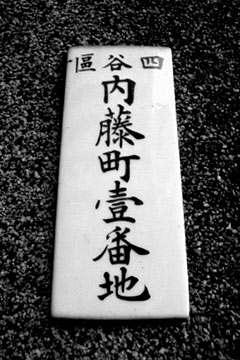 四谷區
内藤町壹番地